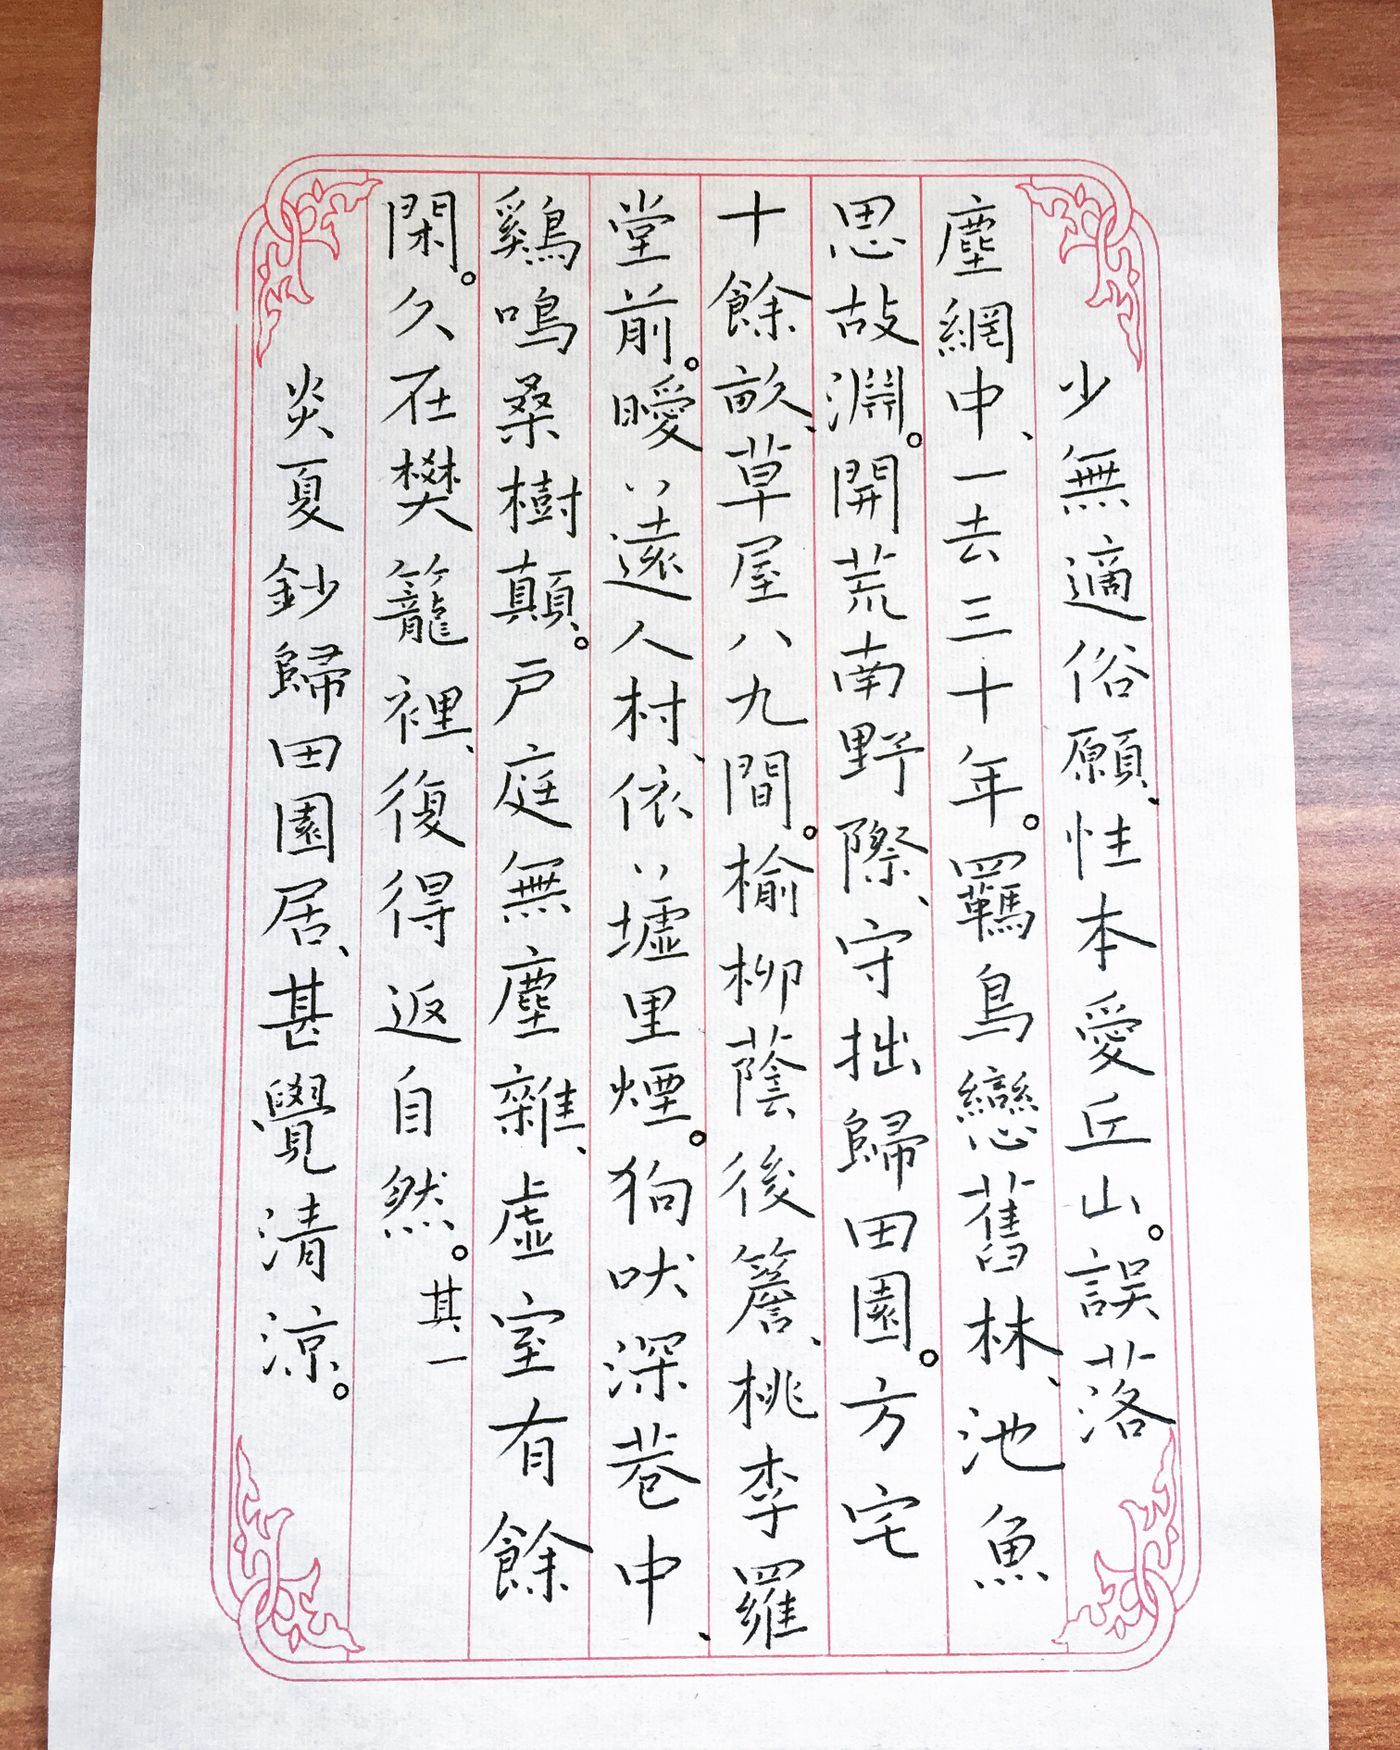 少無適俗願、性本愛丘山。誤落
塵網中、一去三十年。羈鳥戀舊林、池魚
思故淵。開荒南野際、守拙歸田園。方宅
十餘畝、草屋八九間。榆柳蔭後簷、桃李羅
堂前。曖〻遠人村、依〻墟里煙。狗吠深巷中、
鷄鳴桑樹顛。戶庭無塵雜、虛室有餘
閑。久在樊籠裡、復得返自然。其一
炎夏鈔歸田園居、甚覺清涼。